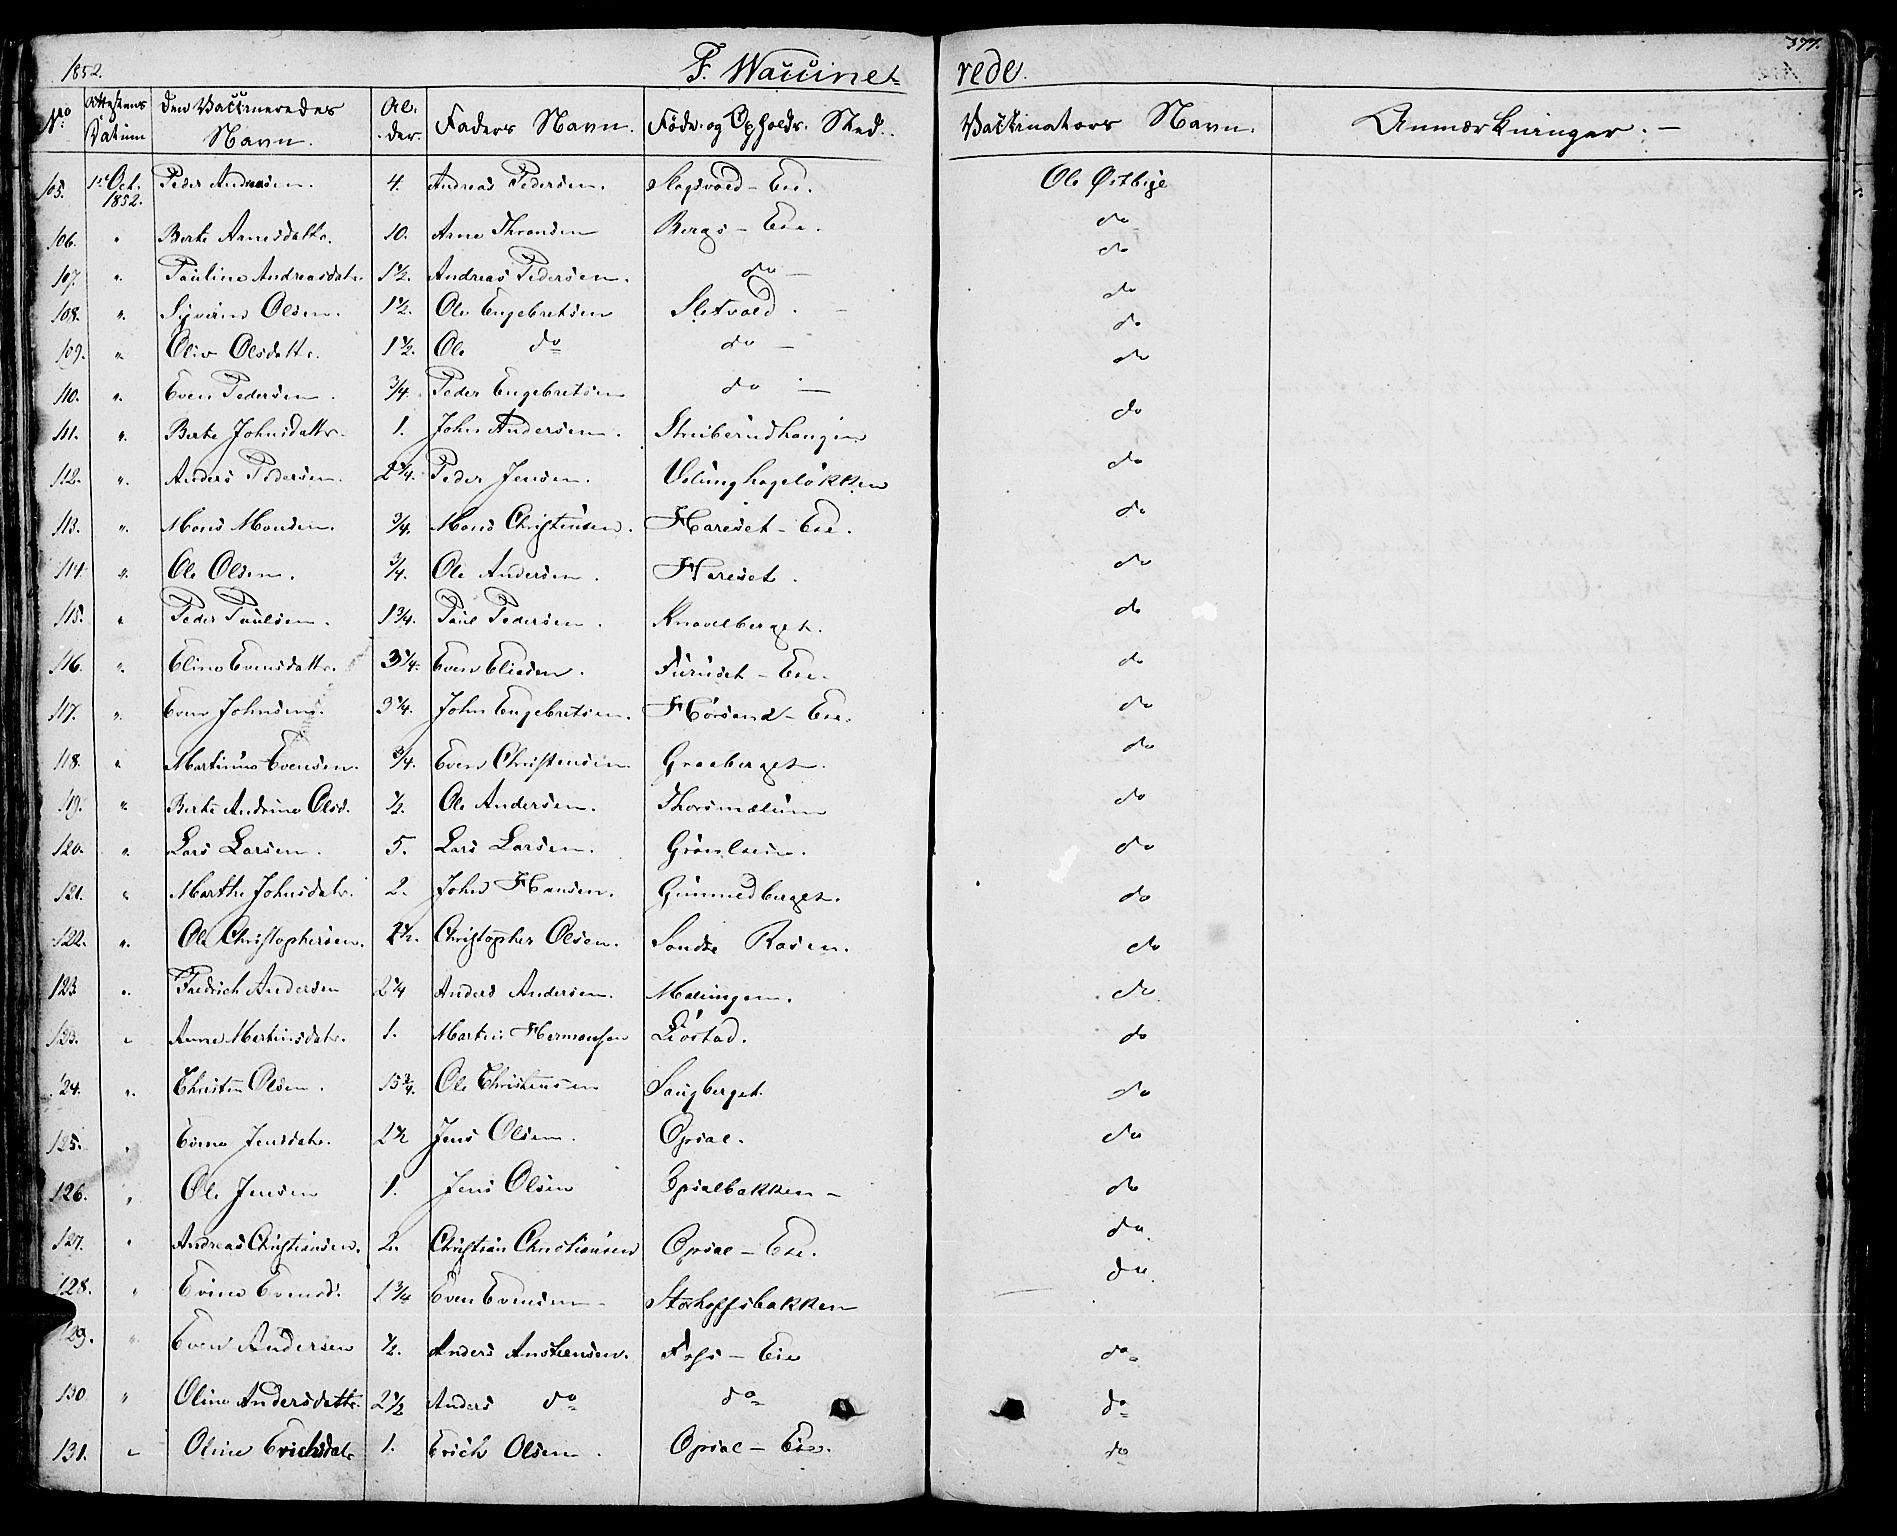 1852.
F. Waccine-
rede.
377.
No Attestens Datum Den Vaccineredes Navn. Al-der. Faders Navn. Føde- og Opholds- Sted. Vaccinators Navn. Anmærkninger. —
105. 1ste Oct. 1852. Peder Andreasen. 4. Andreas Pedersen. Slagsvold - Eie. Ole Østbye
106. " Berte Arnesdattr. 10. Arne Thronsen Bergs - Eie. do
107. " Pauline Andreasdatr. 1½. Andreas Pedersen. do — do
108. " Syverin Olsen. 1½. Ole Engebretsen Sletvold. — do
109. " Oliv Olsdattr. 1½. Ole do do — do
110. " Even Pedersen. ¾ Peder Engebretsen do — do
111. " Berte Johnsdattr. 1. John Andersen. do
112. " Anders Pedersen. 2¼. Peder Jensen. do
113. " Mons Monsen. ¾. Mons Christensen. Hareset - Eie. do
114. " Ole Olsen. ¾. Ole Andersen. Hareset. do
115. " Peder Paulsen. 1¾. Paul Pedersen. Knavelberget. do
116. " Eline Evensdattr. 3¼. Even Eliesen. Furuset - Eie. do
117. " Even Johnsen. 3¼. John Engebretsen. Hørsand - Eie. do
118. " Martinus Evensen. ¾. Even Christensen Graaberget. do
119. " Berte Andrine Olsd. ½. Ole Andersen. Thorsmælum do
120. " Lars Larsen. 5. Lars Larsen. do
121. " Marthe Johnsdatr. 2. John Hansen. Gunmedberget. do
122. " Ole Christophersen. 1½. Christopher Olsen. Søndre Rosen. do
123. " Fredrich Andersen 2¼ Anders Andersen. do
123. " Anne Martinsdatr. 1. Martin Hermansen Liøstad. do
124. " Christen Olsen. 15¾. Ole Christensen Saugberget. do
125. " Jensdatr. 2½ Jens Olsen. Opsal. do
126. " Ole Jensen 1. Jens Olsen Opsalbakken - do
127. " Andreas Christiansen. 2. Christian Christiansen Opsal - Eie. do
128. " Evine Evensd. 1¾ Even Evensen - Storhoffsbakken do
129. " Even Andersen ½. Anders Anstensen. Fossi - Eie do
130 " Oline Andersdattr. 2½ Anders do do do
131. " Oline Erichsdatr 1. Erich Olsen. Opsal - Eie. do